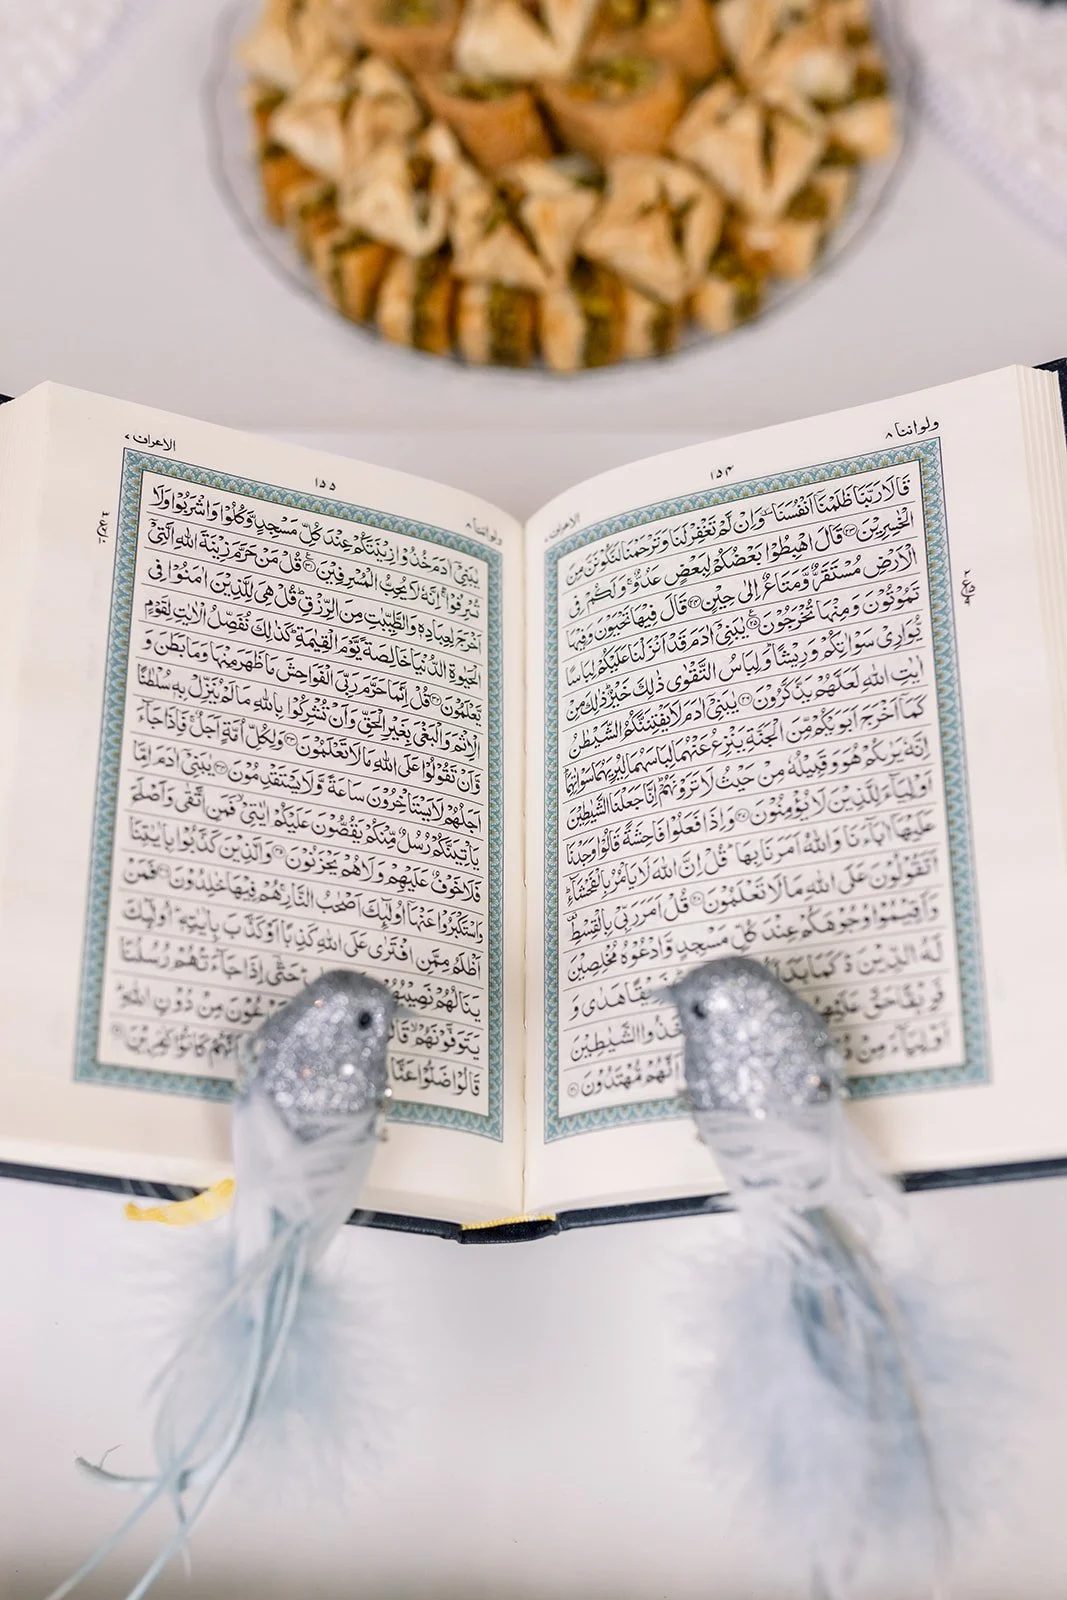 ولواننا ٨
١٥٤
الاعراف ٧
قَالَا رَبَّنَا ظَلَمْنَآ اَنْفُسَنَا وَاِنْ لَّمْ تَغْفِرْ لَنَا وَتَرْحَمْنَا لَنَكُوْنَنَّ مِنَ
الْخٰسِرِيْنَ ۝٢٣ قَالَ اهْبِطُوْا بَعْضُكُمْ لِبَعْضٍ عَدُوٌّ ۚ وَلَكُمْ فِى
الْاَرْضِ مُسْتَقَرٌّ وَّمَتَاعٌ اِلٰى حِيْنٍ ۝٢٤ قَالَ فِيْهَا تَحْيَوْنَ وَفِيْهَا
تَمُوْتُوْنَ وَمِنْهَا تُخْرَجُوْنَ ۝٢٥ يٰبَنِىْٓ اٰدَمَ قَدْ اَنْزَلْنَا عَلَيْكُمْ لِبَاسًا
يُّوَارِىْ سَوْاٰتِكُمْ وَرِيْشًا ۗ وَلِبَاسُ التَّقْوٰى ذٰلِكَ خَيْرٌ ۗ ذٰلِكَ مِنْ
اٰيٰتِ اللّٰهِ لَعَلَّهُمْ يَذَّكَّرُوْنَ ۝٢٦ يٰبَنِىْٓ اٰدَمَ لَا يَفْتِنَنَّكُمُ الشَّيْطٰنُ
كَمَآ اَخْرَجَ اَبَوَيْكُمْ مِّنَ الْجَنَّةِ يَنْزِعُ عَنْهُمَا لِبَاسَهُمَا لِيُرِيَهُمَا سَوْاٰتِهِمَا ۗ
اِنَّهٗ يَرٰىكُمْ هُوَ وَقَبِيْلُهٗ مِنْ حَيْثُ لَا تَرَوْنَهُمْ ۗ اِنَّا جَعَلْنَا الشَّيٰطِيْنَ
اَوْلِيَآءَ لِلَّذِيْنَ لَا يُؤْمِنُوْنَ ۝٢٧ وَاِذَا فَعَلُوْا فَاحِشَةً قَالُوْا وَجَدْنَا
عَلَيْهَآ اٰبَآءَنَا وَاللّٰهُ اَمَرَنَا بِهَا ۗ قُلْ اِنَّ اللّٰهَ لَا يَاْمُرُ بِالْفَحْشَآءِ ۗ
اَتَقُوْلُوْنَ عَلَى اللّٰهِ مَا لَا تَعْلَمُوْنَ ۝٢٨ قُلْ اَمَرَ رَبِّىْ بِالْقِسْطِ ۗ
وَاَقِيْمُوْا وُجُوْهَكُمْ عِنْدَ كُلِّ مَسْجِدٍ وَّادْعُوْهُ مُخْلِصِيْنَ
لَهُ الدِّيْنَ ۗ كَمَا هَدٰى وَ
فَرِيْقًا حَقَّ عَلَيْهِمُ الشَّيٰطِيْنَ
اَوْلِيَآءَ مِنْ اَنَّهُمْ مُّهْتَدُوْنَ ۝٣٠
ولواننا ٨
١٥٥
الاعراف ٧
يٰبَنِىْٓ اٰدَمَ خُذُوْا زِيْنَتَكُمْ عِنْدَ كُلِّ مَسْجِدٍ وَّكُلُوْا وَاشْرَبُوْا وَلَا
تُسْرِفُوْا ۚ اِنَّهٗ لَا يُحِبُّ الْمُسْرِفِيْنَ ۝٣١ قُلْ مَنْ حَرَّمَ زِيْنَةَ اللّٰهِ الَّتِىْٓ
اَخْرَجَ لِعِبَادِهٖ وَالطَّيِّبٰتِ مِنَ الرِّزْقِ ۗ قُلْ هِىَ لِلَّذِيْنَ اٰمَنُوْا فِى
الْحَيٰوةِ الدُّنْيَا خَالِصَةً يَّوْمَ الْقِيٰمَةِ ۗ كَذٰلِكَ نُفَصِّلُ الْاٰيٰتِ لِقَوْمٍ
يَّعْلَمُوْنَ ۝٣٢ قُلْ اِنَّمَا حَرَّمَ رَبِّىَ الْفَوَاحِشَ مَا ظَهَرَ مِنْهَا وَمَا بَطَنَ وَ
الْاِثْمَ وَالْبَغْىَ بِغَيْرِ الْحَقِّ وَاَنْ تُشْرِكُوْا بِاللّٰهِ مَا لَمْ يُنَزِّلْ بِهٖ سُلْطٰنًا
وَّاَنْ تَقُوْلُوْا عَلَى اللّٰهِ مَا لَا تَعْلَمُوْنَ ۝٣٣ وَلِكُلِّ اُمَّةٍ اَجَلٌ ۚ فَاِذَا جَآءَ
اَجَلُهُمْ لَا يَسْتَاْخِرُوْنَ سَاعَةً وَّلَا يَسْتَقْدِمُوْنَ ۝٣٤ يٰبَنِىْٓ اٰدَمَ اِمَّا
يَاْتِيَنَّكُمْ رُسُلٌ مِّنْكُمْ يَقُصُّوْنَ عَلَيْكُمْ اٰيٰتِىْ ۙ فَمَنِ اتَّقٰى وَاَصْلَحَ
فَلَا خَوْفٌ عَلَيْهِمْ وَلَا هُمْ يَحْزَنُوْنَ ۝٣٥ وَالَّذِيْنَ كَذَّبُوْا بِاٰيٰتِنَا
وَاسْتَكْبَرُوْا عَنْهَآ اُولٰٓئِكَ اَصْحٰبُ النَّارِ ۚ هُمْ فِيْهَا خٰلِدُوْنَ ۝٣٦ فَمَنْ
اَظْلَمُ مِمَّنِ افْتَرٰى عَلَى اللّٰهِ كَذِبًا اَوْ كَذَّبَ بِاٰيٰتِهٖ ۗ اُولٰٓئِكَ
يَنَالُهُمْ نَصِيْبُهُمْ حَتّٰىٓ اِذَا جَآءَتْهُمْ رُسُلُنَا
يَتَوَفَّوْنَهُمْ ۙ مِنْ دُوْنِ اللّٰهِ ۗ
قَالُوْا ضَلُّوْا عَنَّا اَنَّهُمْ كَانُوْا كٰفِرِيْنَ ۝٣٧